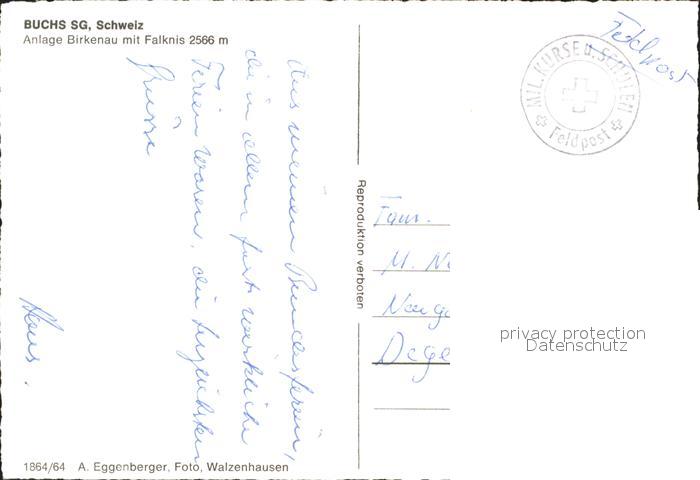 BUCHS SG, Schweiz
Anlage Birkenau mit Falknis 2566 m
Aus meinen Bundesferien,
die in allem fast wirkliche
Ferien waren, die herzlichsten
Grüsse
Hans.
1864/64 A. Eggenberger, Foto, Walzenhausen
Reproduktion verboten
Feldpost
MIL. KURSE u. SCHULEN
Feldpost
Fam.
M.
privacy protection
Datenschutz